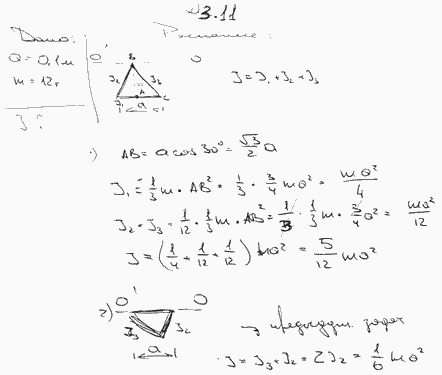 N 3.11
Дано: Решение:
a = 0,1 м
m = 12 г
J - ?
O' O
B
J₂ J₃
J₁ A C
a
J = J₁ + J₂ + J₃
) AB = a cos 30° = √3/2 a
J₁ = 1/3 m · AB² = 1/3 · 3/4 ma² = ma²/4
J₂ = J₃ = 1/12 · 1/3 m · AB² = 1/3 · 1/3 m · 3/4 a² = ma²/12
J = (1/4 + 1/12 + 1/12) ma² = 5/12 ma²
2) O' O
J₃ J₂
a
→ предыдущ. задач
J = J₃ + J₂ = 2J₂ = 1/6 ma²